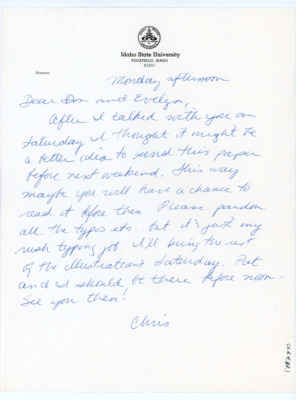 Idaho State University
POCATELLO, IDAHO
83201
Museum
Monday afternoon
Dear Don and Evelyn,
After I talked with you on
Saturday I thought it might be
a better idea to send this paper
before next weekend. This way
maybe you will have a chance to
read it before then. Please pardon
all the typos etc. but it's just my
rush typing job. I'll bring the rest
of the illustrations Saturday. Pat
and I should be there before noon-
See you then!
Chris